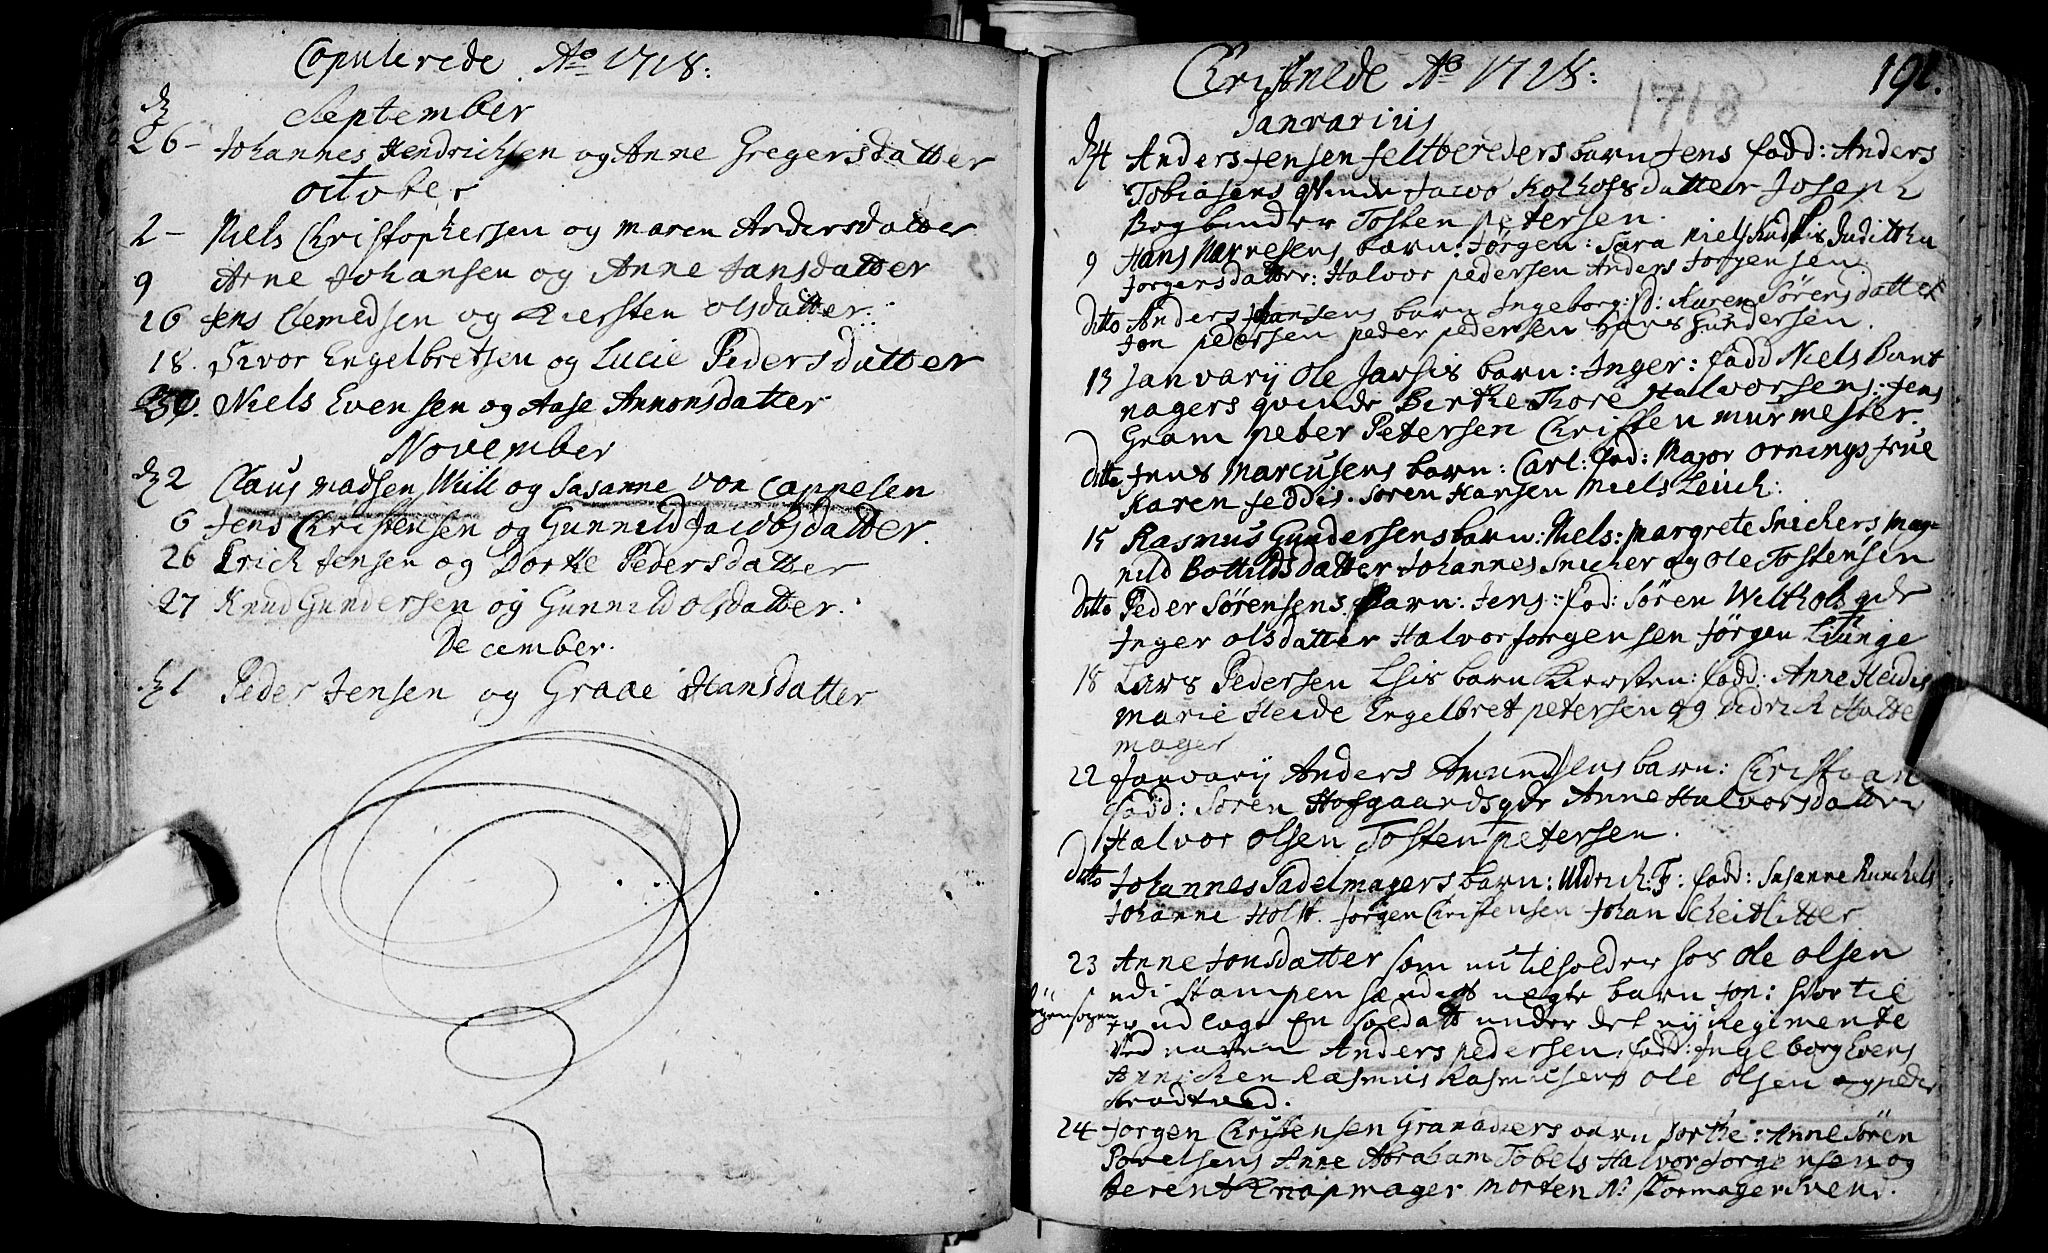 Copulerede Ao 1718:
d
September
26 - Johannes Hendrichsen og Anne Gregersdatter
October
2 - Niels Christophersen og maren Andersdatter
9 Arne Johansen og Anne Jansdatter
16 Jens Clemedsen og Kiersten olsdatter:
18. Sivor Engelbretsen og Lucie Pedersdatter
30. Niels Evensen og Aase Annonsdatter
November
d 2 Claus madsen Wiil og Susanne von Cappelen
6 Jens Christensen og Gunnild Jacobsdatter.
26 Erich Jensen og Dorthe Pedersdatter
27 Knud Gundersen og Gunnild olsdatter.
December.
d 1 Peder Jensen og Graae Hansdatter
Christnede Ao 1718: 191.
1718
Janvarius
d 4 Anders Jensen feltberedersbarn Jens fadd: Anders
Tobiasens qvinde Jacob Kolhofs datter Joseph
Bogbinder Tosten petersen.
9 Hans Narvesens barn: Jørgen: Sara Niels Juditha
Jorgensdatter: Halvor pedersen Anders Jorgensen
ditto Anders Hansens barn Ingeborg: fd: Karen Sørensdatter
Jon pedersen peder pedersen Hans Gundersen.
13 Janvarij Ole Jarsis barn: Inger: fadd Niels Bunt
magers qvinde Birthe Thore Halvorsens: Jens
Gram peter Petersen Christen murmester.
ditto Jens Marcusens barn: Carl: fad: Major ornings frue
Karen feddis. Søren Hansen Niels Leuch:
15 Rasmus Gundersens barn: Niels: Margrete Snichers Mag-
nild Bottildsdatter Johannes Snicher og Ole Tostensen
ditto Peder Sørensens Barn: Jens: fad: Søren Welthols qde
Inger olsdatter Halvor Jorgensen Jørgen Lunge
18 Lars Pedersen barn Kiersten: fadd: Anne Heidis
Marie Heide Engelbret petersen og Didrich Hatte
mager
22 Janvarij Anders Amundsens barn:
fadd: Søren Hofgaards qde Anne Halvorsdatter
Halvor olsen Tosten petersen.
ditto Johannes Sadelmagers barn: Uldrich: F: fadd: Susanne Runchels
Johanne Holst. Jorgen Christensen Johan Scheitlitter
23 Anne Jonsdatter som nu tilholder hos Ole olsen
udi Stampen uegte barn Jon: hvor til
er udlagt En soldatt under det nij Regimente
ved naven Anders pedersen, fadd: Ingeborg Evens
Annichen Rasmus Rasmusens Ole olsen og peder
24 Jorgen Christensen Granadeers barn Dorthe: Anne Søren
Povelsens Anne Abraham Tobels Halvor Jorgensen og
Berent Knapmager Morten N: skomager svend.